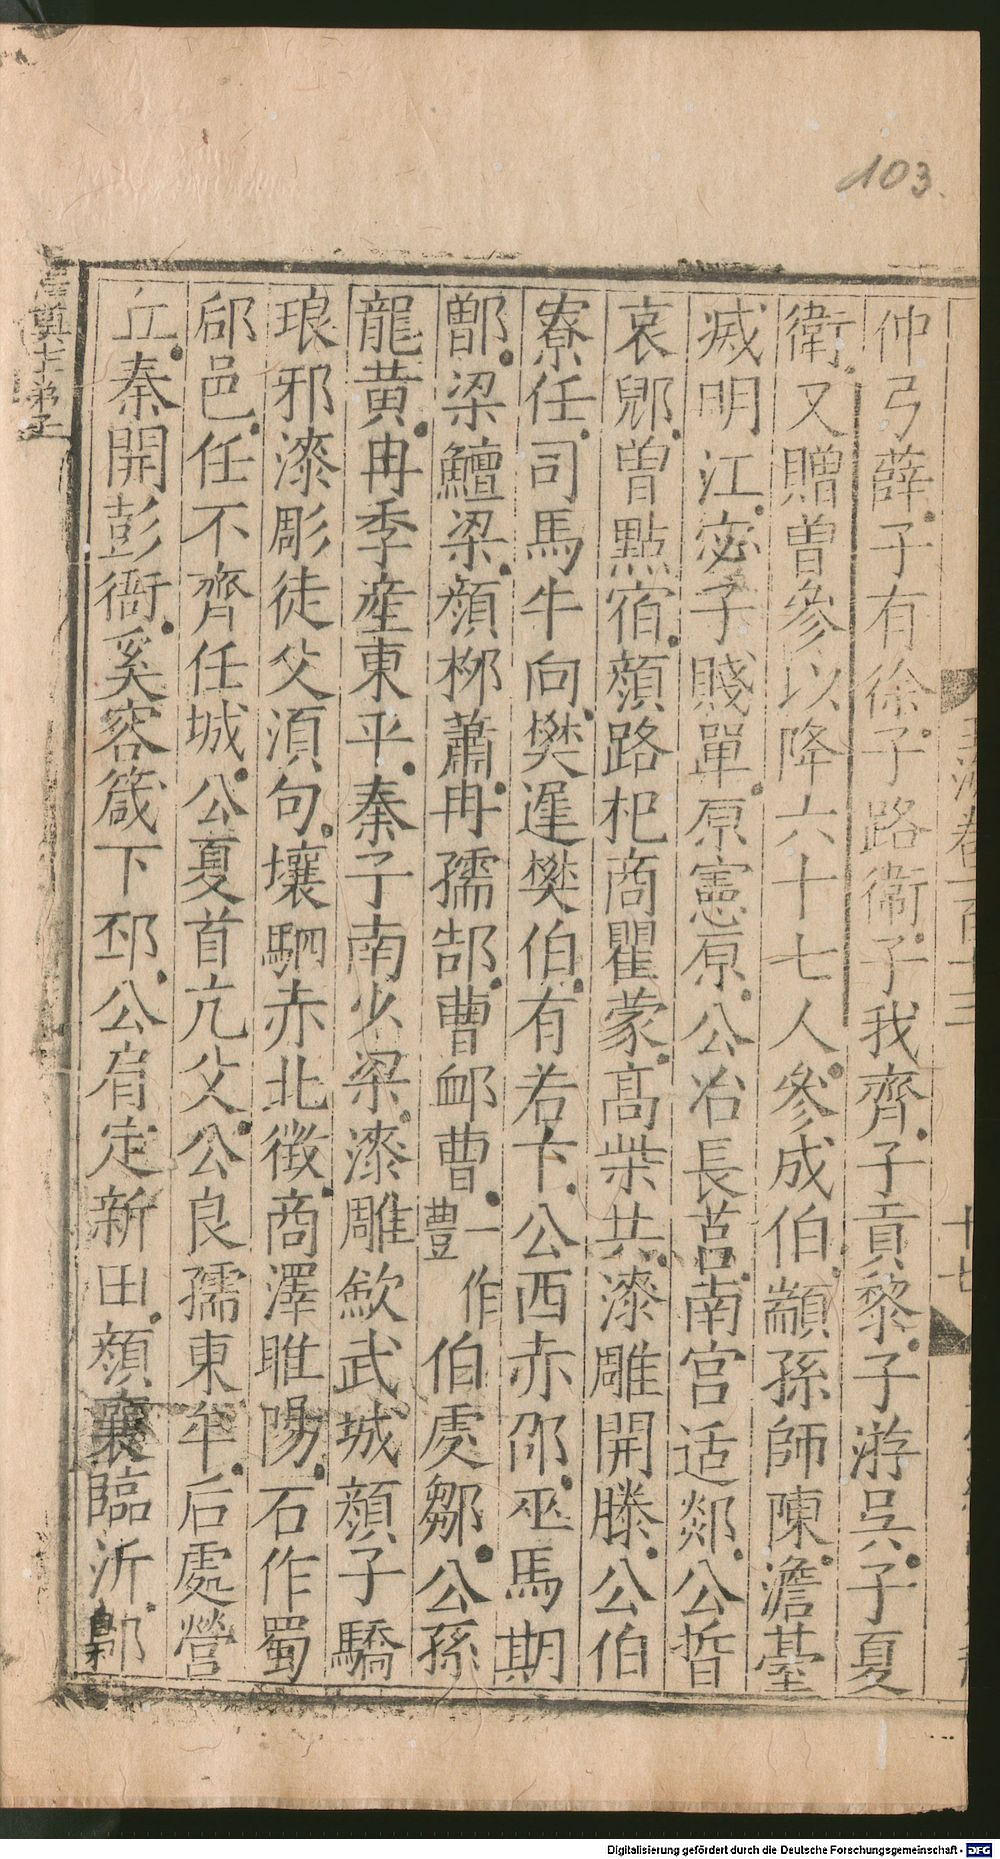 103.
仲弓薛子有徐子路衛子我齊子貢黎子游吳子夏
衛又贈曾參以降六十七人參成伯顓孫師陳澹臺
滅明江宓子賤單原憲原公冶長莒南宮适郯公晳
哀郳曾點宿顏路杞商瞿蒙高柴共漆雕開滕公伯
寮任司馬牛向樊遲樊伯有若卞公西赤邵巫馬期
鄫梁鱣梁顏柳蕭冉孺郜曹卹曹一作豊伯處鄒公孫
龍黃冉季產東平秦子南少梁漆雕歛武城顏子驕
琅邪漆彫徒父須句壤駟赤北徵商澤睢陽石作蜀
郈邑任不齊任城公夏首亢父公良孺東牟后處營
丘秦開彭衙奚容箴下邳公肩定新田顏襄臨沂鄡
奠
弟子
十七
Digitalisierung gefördert durch die Deutsche Forschungsgemeinschaft - DFG